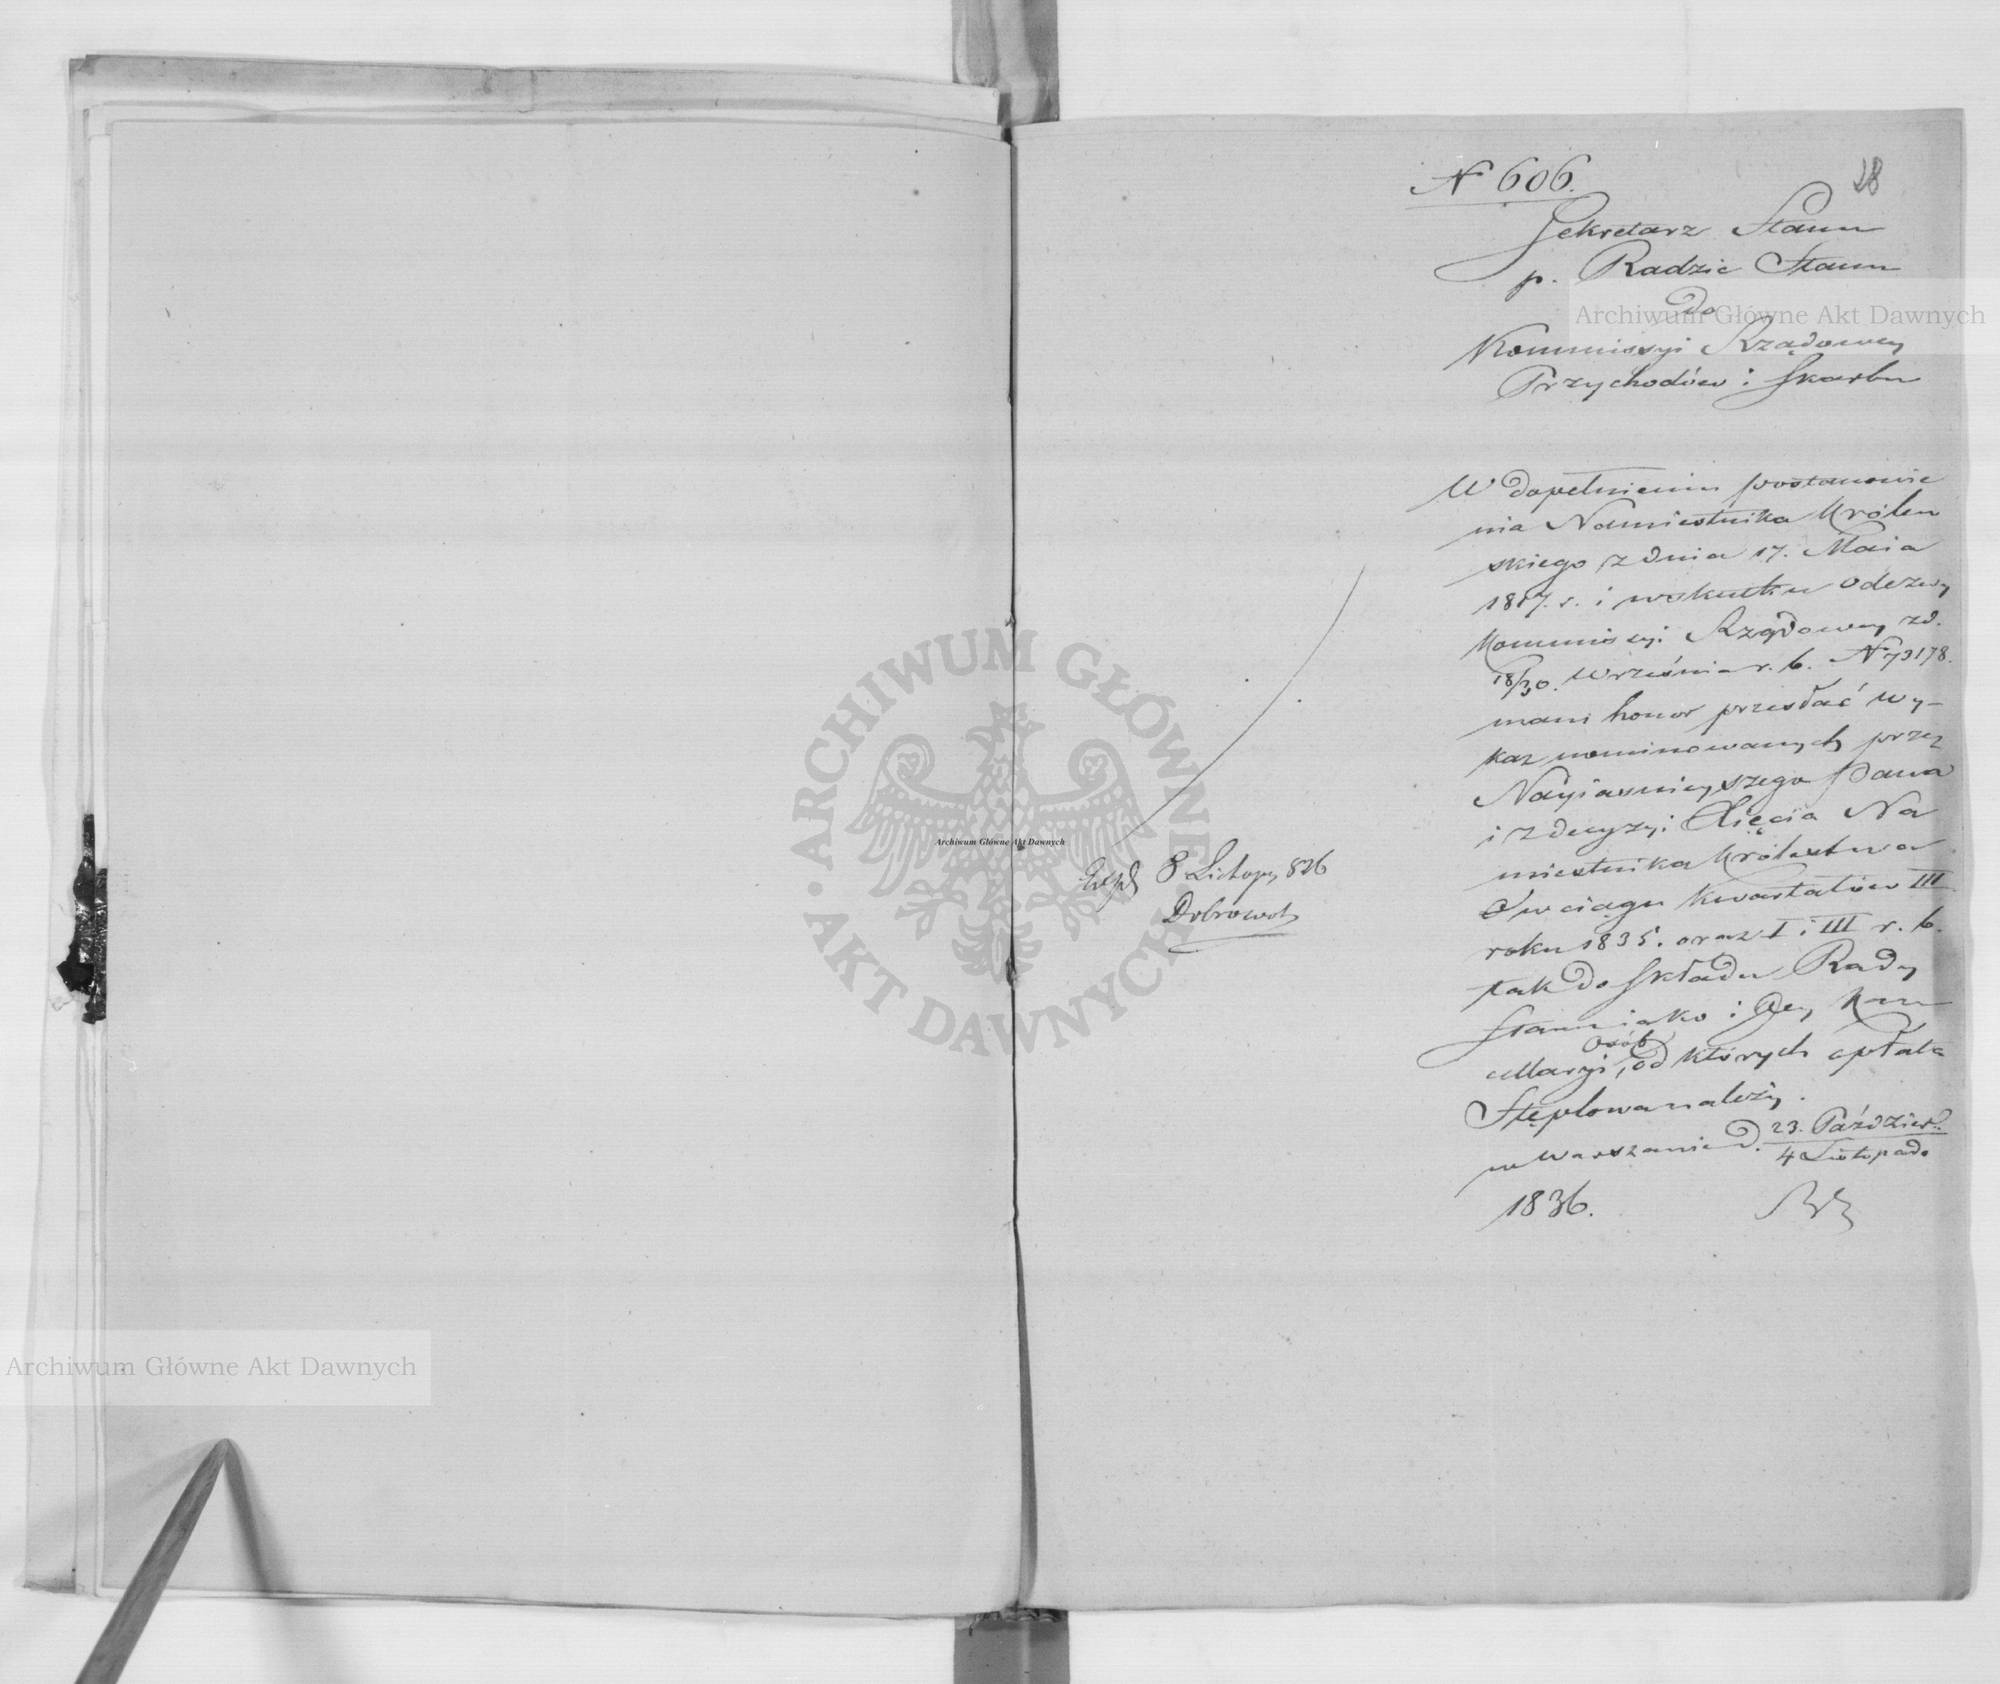 28
N 606.
Sekretarz Stanu
p. Radzie Stanu
do
Kommissyi Rządowey
Przychodów i Skarbu
W dopełnieniu postanowie
nia Namiestnika Królew
skiego z dnia 17. Maia
1817. r. i wskutku odezwy
Kommissyi Rządowey zd.
18/30. Września r. b. N 73178.
mam honor przesłać wy-
kaz nominowanych przez
Nayiaśnieyszego Pana
i z decyzyi Xięcia Na
miestnika Królestwa
w ciągu kwartałów III
roku 1835. oraz I i III r. b.
tak do Składu Rady
Stanu iako i Jey Kan
cellaryi, osób od których opłata
Stęplowa należy.
w Warszawie d. 23. Paździer.
4 Listopada
1836.
Exp. 8 Listopa, 836
Dobrowol
Archiwum Główne Akt Dawnych
Archiwum Główne Akt Dawnych
Archiwum Główne Akt Dawnych
ARCHIWUM GŁÓWNE AKT DAWNYCH